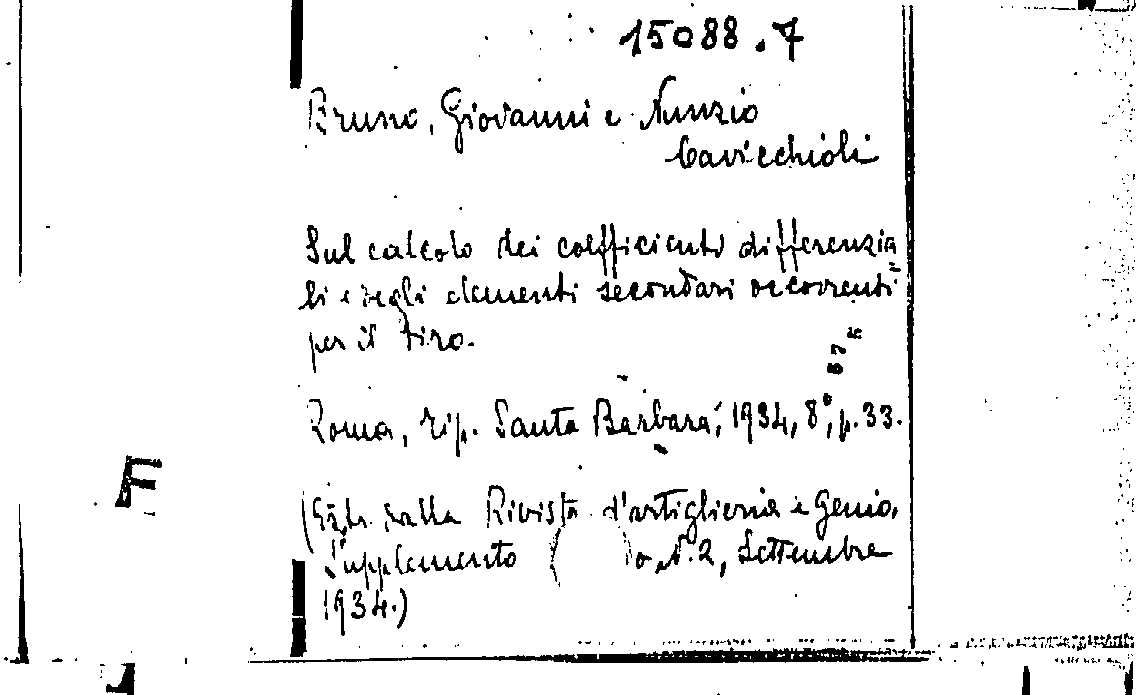 15088.7
Bruno, Giovanni e Nunzio
Cavicchioli
Sul calcolo dei coefficienti differenzia
li e degli elementi secondari occorrenti
per il tiro.
Roma, tip. Santa Barbara, 1934, 8°, p. 33.
(Estr. dalla Rivista d'artiglieria e Genio,
Supplemento N. 2, Settembre
1934.)
F